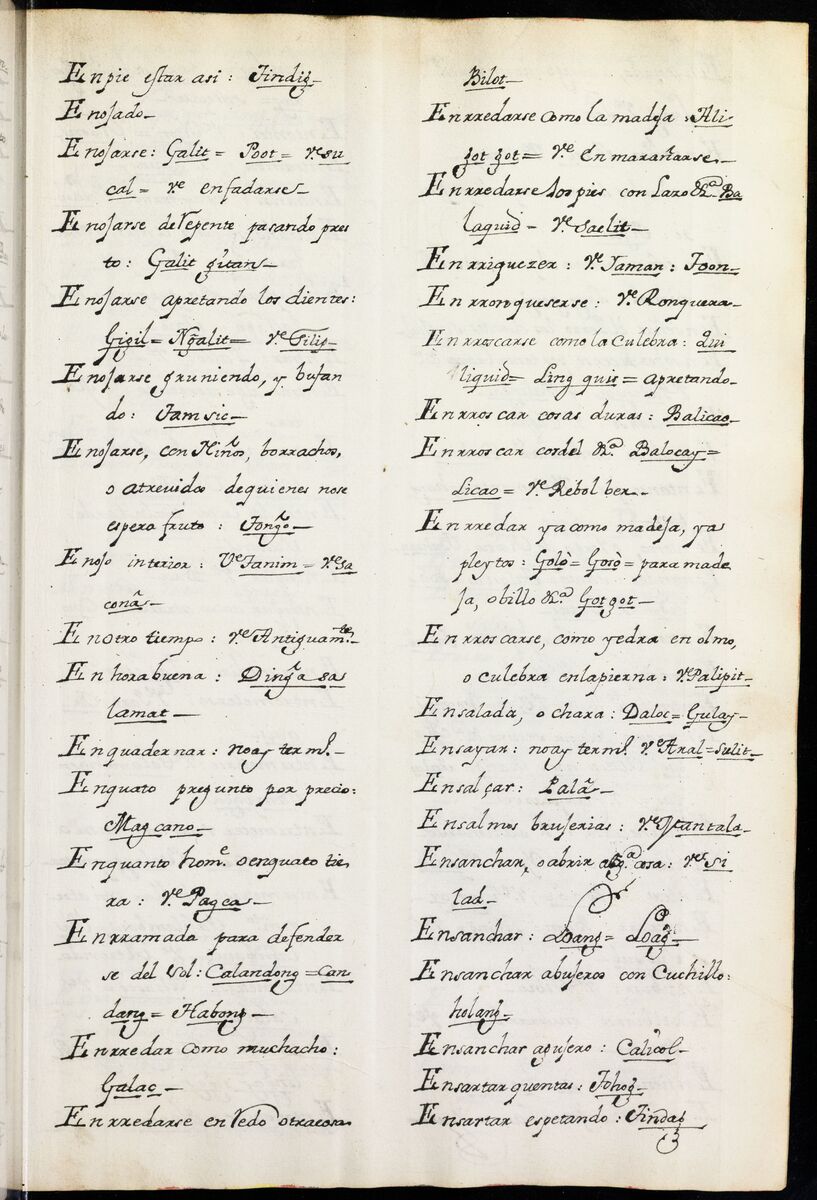 Enpie estar asi: Tindig_
Enojado_
Enojarse: Galit = Poot = v.e su
cal = v.e enfadarse_
Enojarse derepente pasando pres
to: Galit g̃itan_
Enojarse apretando los dientes:
Gigil = Ng̃alit = v.e Tilip_
Enojarse gruniendo, y bufan
do: Tamsic_
Enojarse, con Niños, borrachos,
o atrevidos dequienes nose
espera fruto: Tong̃o_
Enojo interior: V.e Tanim = v.e Sa
conã_
Enotro tiempo: v.e Antiguam.te_
Enhorabuena: Ding̃a sa
lamat_
Enquadernar: noay term.o_
Enquato pregunto por precio:
Magcano_
Enquanto hom.e oenquato tie
rra: v.e Pagca_
Enrramada para defender
se del sol: Calandong = Can
dang = Habong_
Enrredar como muchacho:
Galac_
Enrredarse enredo otracosa
Bilot_
Enrredarse como la madeja: Ali
got got = v.e Enmarañarse_
Enrredarse los pies con Lazo &.a Ba
laquid_ v.e Saelit_
Enrriquezer: v.e Taman: Toon_
Enrronqueserse: v.e Ronquera_
Enrroscarse como la Culebra: Qui
liquid = Ling quis = apretando_
Enrroscar cosas duras: Balicao_
Enrroscar cordel &.a Balocay =
Licao = v.e Rebolber_
Enrredar ya como madeja, ya
pleytos: Golò = Gosò = para made
ja, obillo &.a Gotgot_
Enrroscarse, como yedra en olmo,
o culebra enlapierna: v.e Palipit_
Ensalada, o chara: Daloc = Gulay_
Ensayar: noay term.o v.e Aral = sulit_
Ensalçar: Palã_
Ensalmos brujerias: v.e Mantala_
Ensanchar, o abrir alg.a cosa: v.e Si
lad_
Ensanchar: Loang = Loag̃_
Ensanchar abujeros con Cuchillo:
holang_
Ensanchar agujero: Calicol_
Ensartar quentas: Tohog_
Ensartar espetando: Tindag